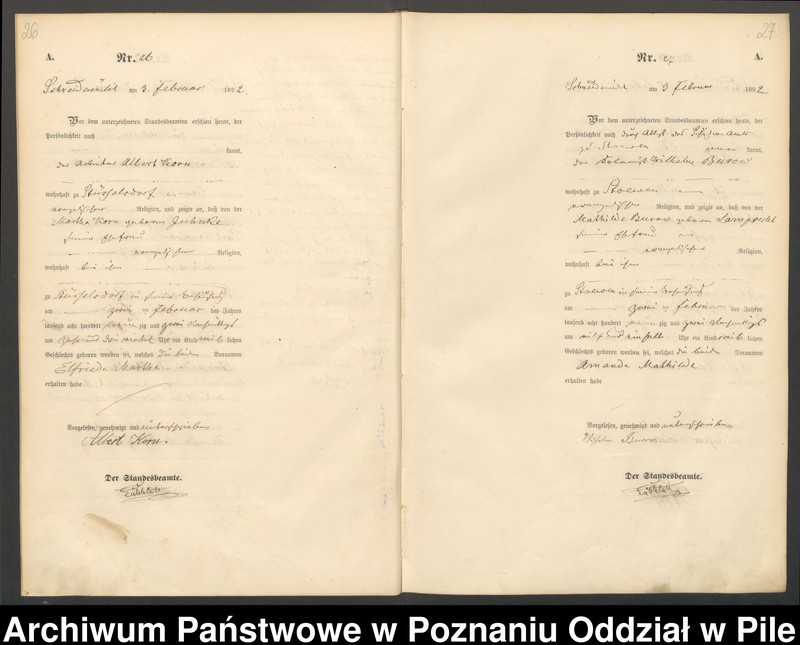 26
A.
Nr. 26
am 3. Februar 1892.
Vor dem unterzeichneten Standesbeamten erschien heute, der
Persönlichkeit nach
kannt,
der Arbeiter Albert Korn
wohnhaft zu Stüsselsdorf
evangelischer Religion, und zeigte an, daß von der
Martha Korn geborenen Juhnke
seiner Ehefrau
evangelischer Religion,
wohnhaft bei ihm
zu Stüsselsdorf in seiner Behausung
am zwei ten Februar des Jahres
tausend acht hundert neunzig und zwei Nachmittags
um Uhr ein Kind weiblichen
Geschlechts geboren worden sei, welches die beiden Vornamen
Elfrieda Martha
erhalten habe
Vorgelesen, genehmigt und unterschrieben
Albert Korn.
Der Standesbeamte.
27
Nr. 27
A.
am 3 Februar 1892
Vor dem unterzeichneten Standesbeamten erschien heute, der
Persönlichkeit nach durch Attest des
zu Stoewen kannt,
der Wilhelm Burow
wohnhaft zu Stoewen
evangelischer Religion, und zeigte an, daß von der
Mathilde Burow geboren Lamprecht
seiner Ehefrau
evangelischer Religion,
wohnhaft bei ihm
zu Stoewen in seiner Behausung
am zwei ten Februar des Jahres
tausend acht hundert neunzig und zwei Nachmittags
um Uhr ein Kind weiblichen
Geschlechts geboren worden sei, welches die beiden Vornamen
Amanda Mathilde
erhalten habe
Vorgelesen, genehmigt und unterschrieben
Wilhelm Burow
Der Standesbeamte.
Archiwum Państwowe w Poznaniu Oddział w Pile